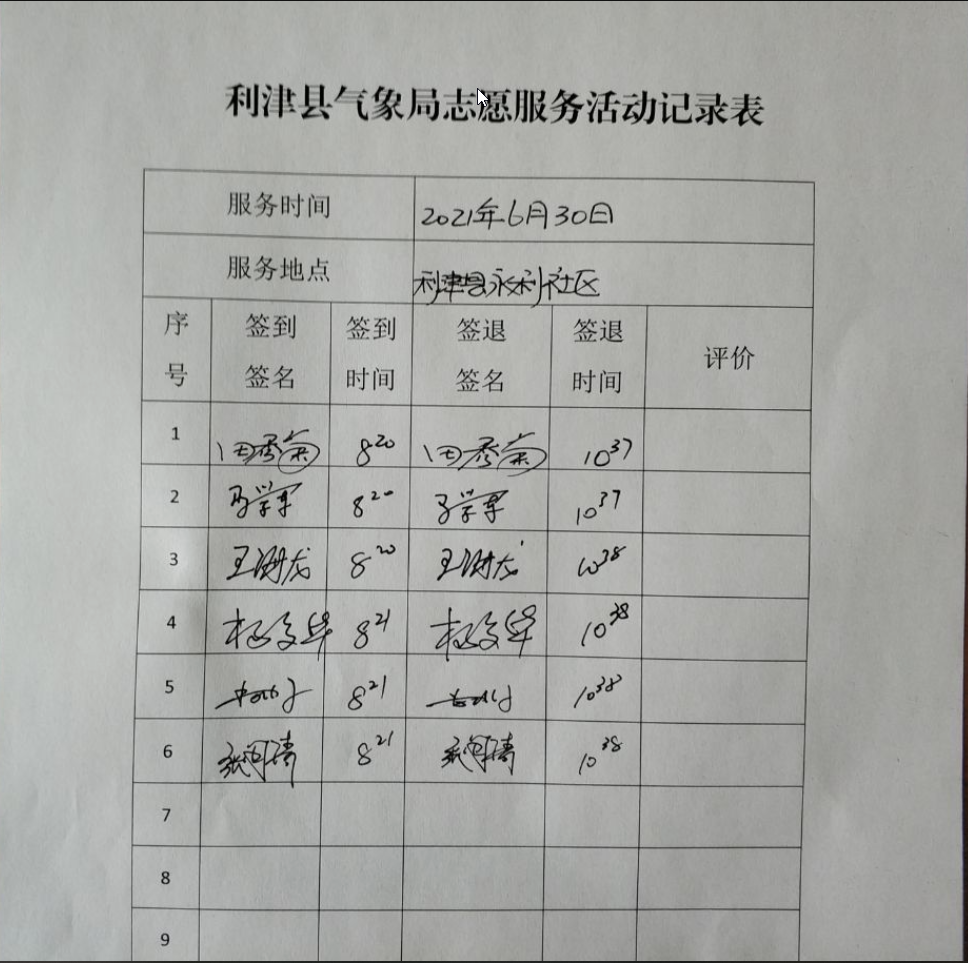 利津县气象局志愿服务活动记录表
服务时间 2021年6月30日
服务地点 利津县永利社区
序号 签到签名 签到时间 签退签名 签退时间 评价
1 田秀菊 8²⁰ 田秀菊 10³⁷
2 8²⁰ 10³⁷
3 8²⁰ 10³⁸
4 8²¹ 10³⁸
5 8²¹ 10³⁸
6 8²¹ 10³⁸
7
8
9